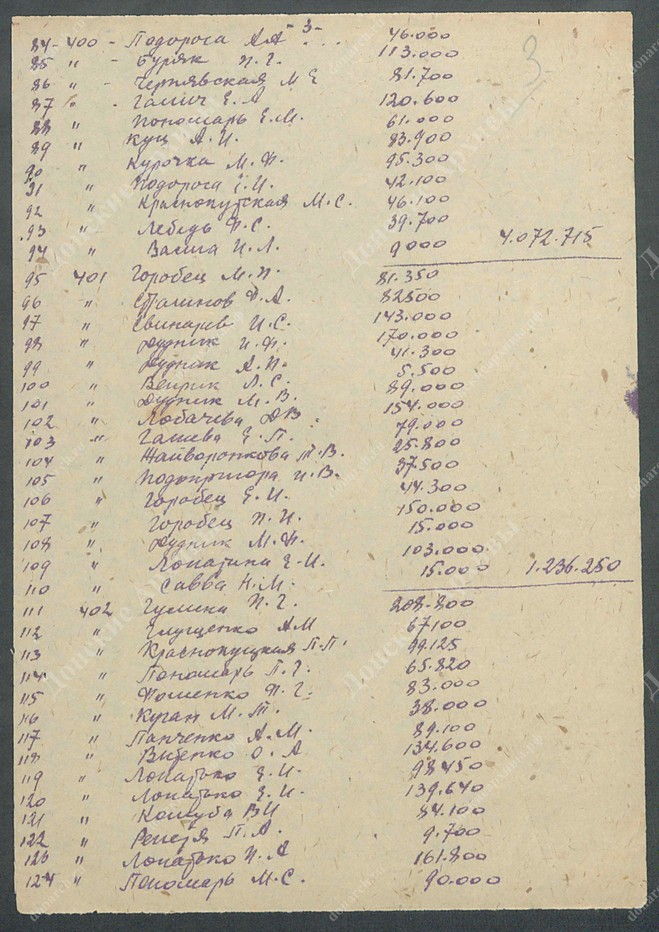 -3-
3
84-400 - Подорога А А ... 46.000
85 " - Буряк П.Г. 113.000
86 " - Чернявская М Е 81.700
87 " - Галич Е. А 120.600
88 " Пономарь Е.М. 61.000
89 " Кущ А.И. 83.900
90 " Курочка М.Ф. 95.300
91 " Подорога Е.И. 42.100
92 " Краснокутская М.С. 46.100
93 " Лебедь Ф.С. 39.700
94 " Васила И.Л. 9000 4.072.715
95 401 Горобец М.П. 81.350
96 " Сталинов Ф.А. 82500
97 " Свинарев И.С. 143.000
98 " Рудник И.Ф. 170.000
99 " Рудник А.П. 41.300
100 " Венрик Л.С. 5.500
101 " Рудник М.В. 89.000
102 " Лобачева АВ 154.000
103 " Галиева Е.П. 79.000
104 " Жайворонкова М.В. 25.800
105 " Подпригора И.В. 37.500
106 " Горобец Е.И. 44.300
107 " Горобец П.И. 150.000
108 " Рудник М.Ф. 15.000
109 " Лопатина Е.И. 103.000
110 " Савва Н.М. 15.000 1.236.250
111 402 П.Г. 208.800
112 " Глущенко АМ 67100
113 " Краснокуцкая П.П. 99.125
114 " Пономарь П.Г. 65.820
115 " Фоменко Ф.Г. 83.000
116 " Куган М.Т. 38.000
117 " Панченко А.М. 89.100
118 " О.А 134.600
119 " Лопатько Е.И. 98450
120 " Лопатько Е.И. 139.640
121 " Кошуба ВИ 84.100
122 " П.А. 9.700
123 " Лопатько И.А 161.800
124 " Пономарь М.С. 90.000